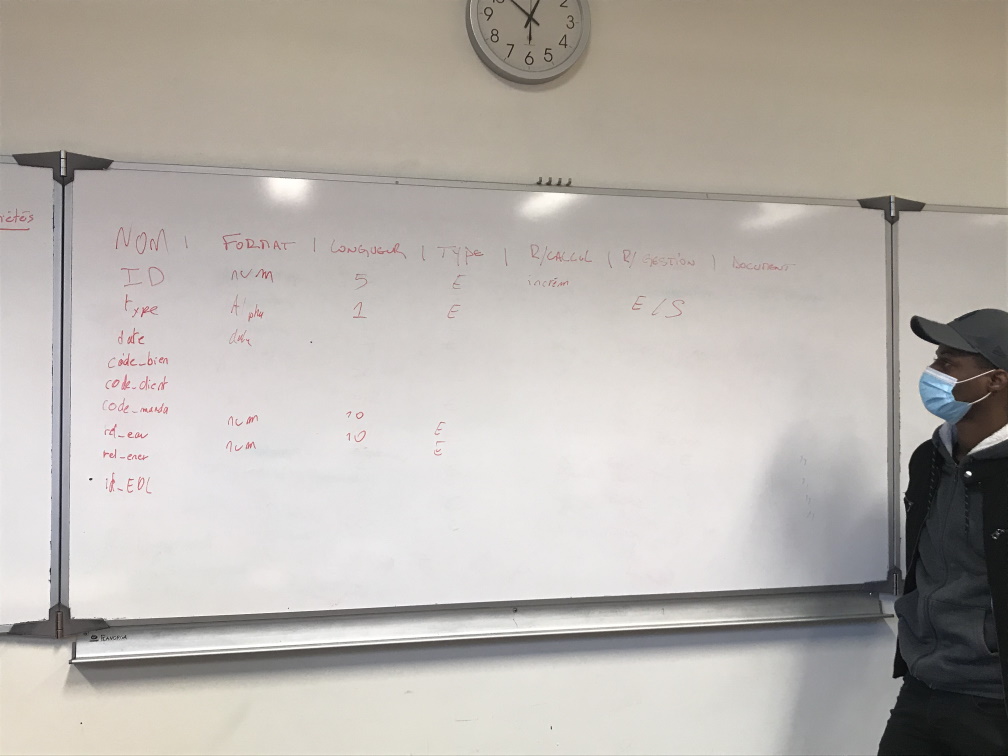 10 2
9 3
8 4
7 6 5
riétés
NOM | FORMAT | LONGUEUR | TYPE | R/CALCUL | R/GESTION | DOCUMENT
ID num 5 E incrém
type Alpha 1 E E/S
date date
code_bien
code_client
code_manda
rel_eau num 10 E
rel_ener num 10 E
id_EDL